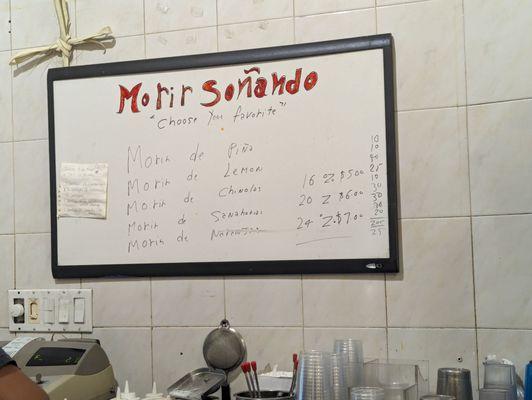 Morir Soñando
"Choose you favorite"
Morir de Piña
Morir de Lemon
Morir de Chinolas
Morir de Sanahorias
Morir de Naranja
16 oz. $5.00
20 z $6.00
24 oz. $7.00
10
10
20
25
10
30
30
30
20
205
25